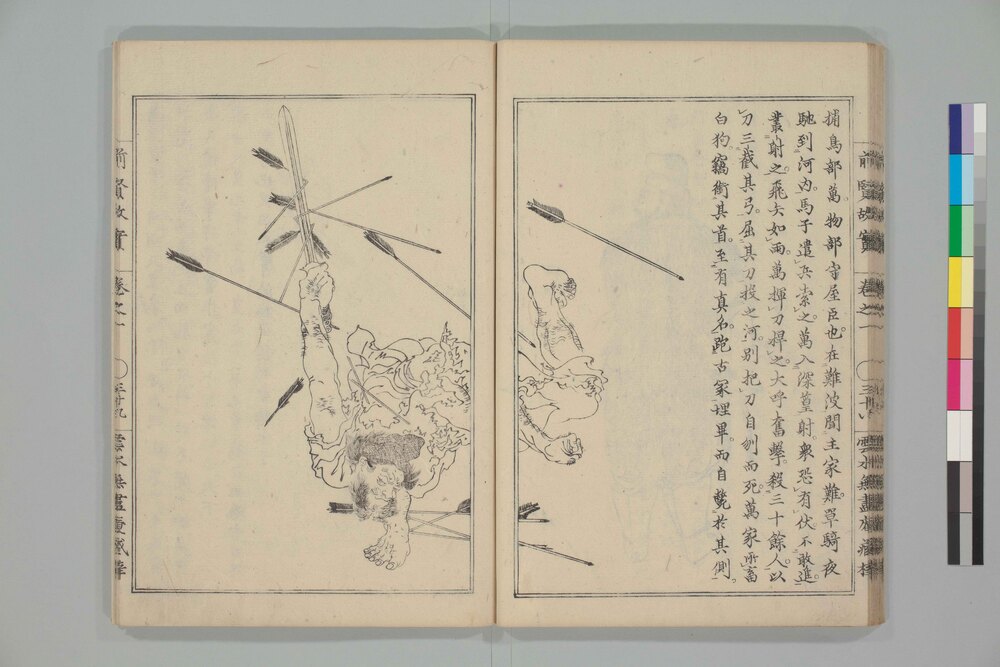 捕鳥部萬物部守屋臣也在難波聞主家難單騎夜
馳到河內馬子遣兵索之萬入深篁射衆恐有伏不敢進
叢射之飛矢如雨萬揮刀捍之大呼奮擊殺三十餘人以
刀三截其弓屈其刀投之河別把刀自刎而死萬家所畜
白狗竊銜其首至有真香邑古冢埋畢而自斃於其側
前賢故實
卷之一
雲水無盡庵藏梓
前賢故實
卷之一
雲水無盡庵藏梓